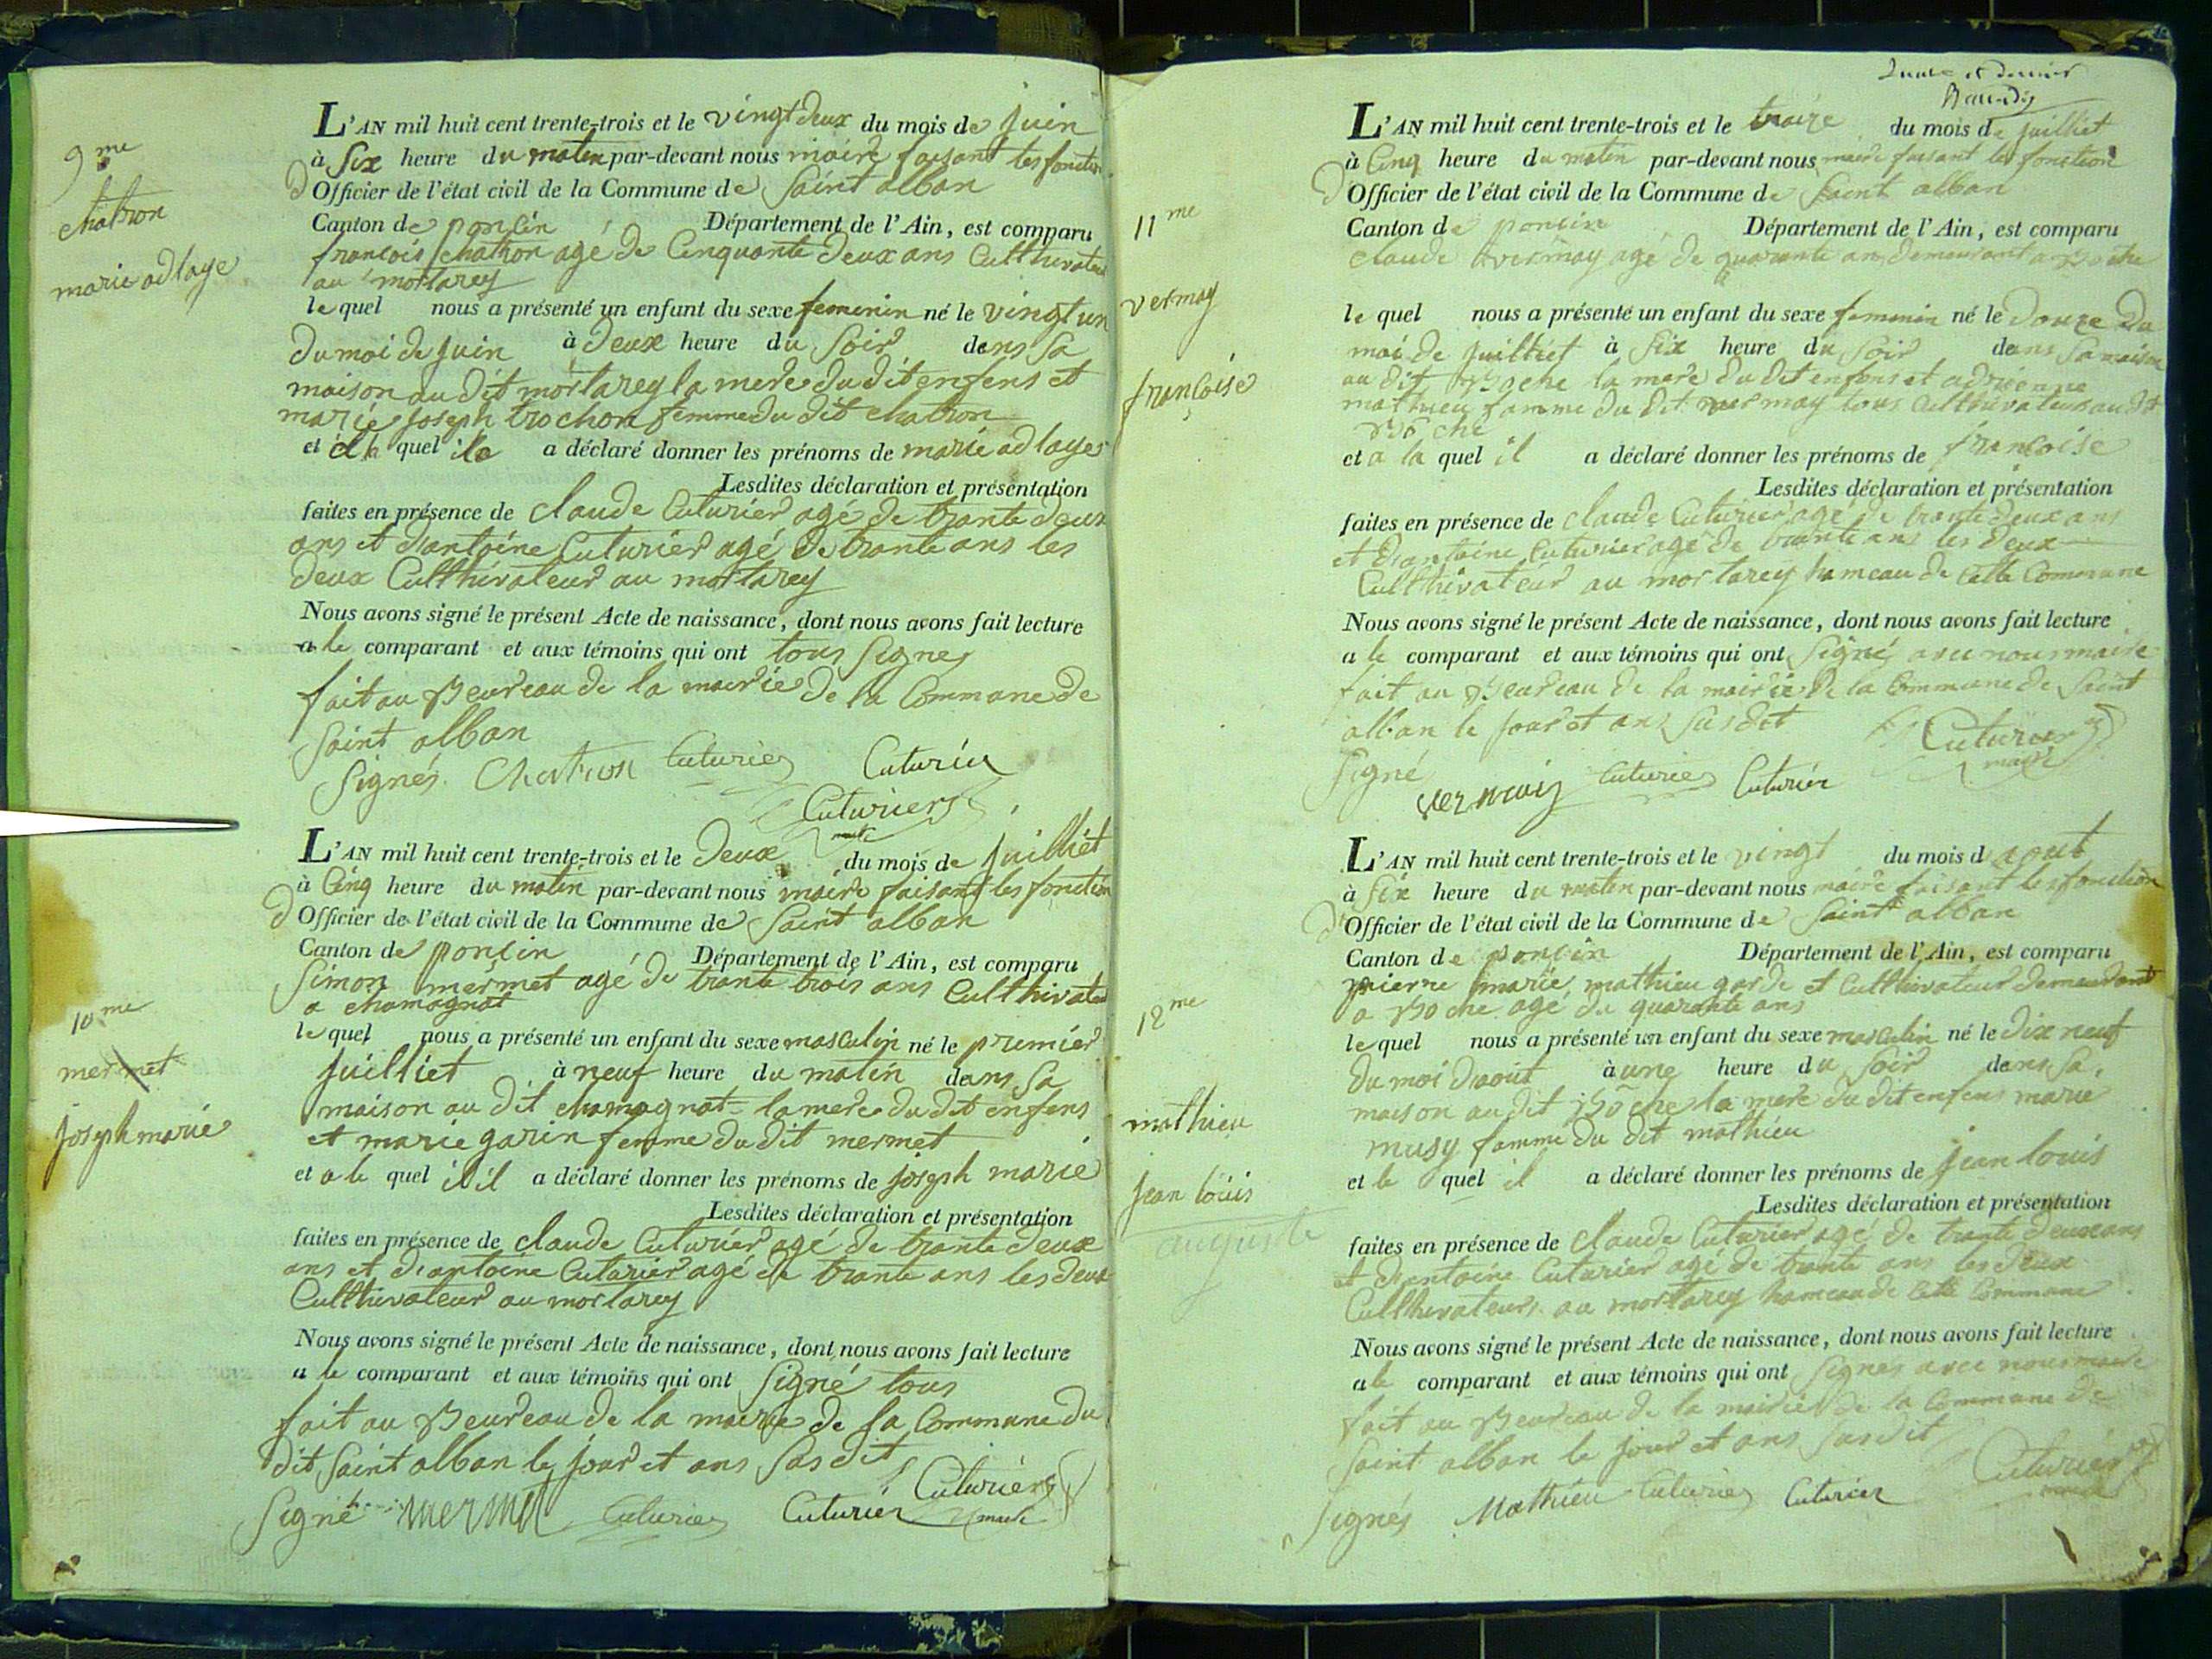 9me
chatron
marie adlaye
L'AN mil huit cent trente-trois et le vingt deux du mois de juin
à Six heure du matin par-devant nous maire faisant les fonction
d'Officier de l'état civil de la Commune de Saint alban
Canton de poncin Département de l'Ain, est comparu
francois chatron agé de Cinquante deux ans Culthivateur
au mortarey
le quel nous a présenté un enfant du sexe femenin né le vingt un
du moi de juin à deux heure du Soir dans Sa
maison au dit mortarey la mere du dit enfens et
marie joseph trochon femme du dit chatron
et quel a déclaré donner les prénoms de marie adlaye
Lesdites déclaration et présentation
faites en présence de claude Cuturier agé de trante deux
ans et d'antoine Cuturier agé de trante ans les
deux Culthivateur au mortarey
Nous avons signé le présent Acte de naissance, dont nous avons fait lecture
a le comparant et aux témoins qui ont tous Signes
fait au Beureau de la mairie de la Commune de
Saint alban
Signés Chatron Cuturier Cuturier
Cuturier
maire
10me
mermet
joseph marie
L'AN mil huit cent trente-trois et le deux du mois de juilliet
à Cinq heure du matin par-devant nous maire faisant les fonction
d'Officier de l'état civil de la Commune de Saint alban
Canton de poncin Département de l'Ain, est comparu
Simon mermet agé de trante trois ans Culthivateur
a chamagnat
le quel nous a présenté un enfant du sexe masculin né le premier
juilliet à neuf heure du matin dans Sa
maison au dit chamagnat la mere du dit enfens
et marie garin femme du dit mermet
et a le quel il a déclaré donner les prénoms de joseph marie
Lesdites déclaration et présentation
faites en présence de claude Cuturier agé de trante deux
ans et d'antoine Cuturier agé de trante ans les deux
Culthivateur au mortarey
Nous avons signé le présent Acte de naissance, dont nous avons fait lecture
a le comparant et aux témoins qui ont Signé tous
fait au Beureau de la mairie de la Commune du
dit Saint alban le jour et ans Sus dit
Signé mermet Cuturier Cuturier Cuturier
maire
et dernier
11me
vermay
françoise
L'AN mil huit cent trente-trois et le traize du mois de juilliet
à Cinq heure du matin par-devant nous maire faisant les fonction
d'Officier de l'état civil de la Commune de Saint alban
Canton de poncin Département de l'Ain, est comparu
claude vermay agé de quarante an demeurant a Boche
le quel nous a présenté un enfant du sexe femenin né le douze du
moi de juilliet à Six heure du Soir dans Sa maison
au dit Boche la mere du dit enfens et adrienne
mathieu famme du dit vermay tous Culthivateur au dit
Boche
et a la quel il a déclaré donner les prénoms de francoise
Lesdites déclaration et présentation
faites en présence de claude Cuturier agé de trante deux ans
et d'antoine Cuturier agé de trante ans les deux
Culthivateur au mortarey hameau de Cette Commune
Nous avons signé le présent Acte de naissance, dont nous avons fait lecture
a le comparant et aux témoins qui ont Signé avec nous maire
fait au Beureau de la mairie de la Commune de Saint
alban le jour et ans Sus dit
Cuturier
maire
Signé vermay Cuturier Cuturier
12me
mathieu
jean louis
auguste
L'AN mil huit cent trente-trois et le vingt du mois d'aout
à Six heure du matin par-devant nous maire faisant les fonction
d'Officier de l'état civil de la Commune de Saint alban
Canton de poncin Département de l'Ain, est comparu
pierre marie mathieu garde et Culthivateur demeurant
a Boche agé de quarante ans
le quel nous a présenté un enfant du sexe masculin né le dix neuf
du moi d'aout à une heure du Soir dans Sa
maison au dit Boche la mere du dit enfens marie
musy famme du dit mathieu
et le quel il a déclaré donner les prénoms de jean louis
Lesdites déclaration et présentation
faites en présence de claude Cuturier agé de trante deux ans
et d'antoine Cuturier agé de trante ans les deux
Culthivateurs au mortarey hameau de Cette Commune
Nous avons signé le présent Acte de naissance, dont nous avons fait lecture
a le comparant et aux témoins qui ont Signes avec nous maire
fait au Beureau de la mairie de la Commune de
Saint alban le jour et ans Sus dit
Signés Mathieu Cuturier Cuturier Cuturier
maire